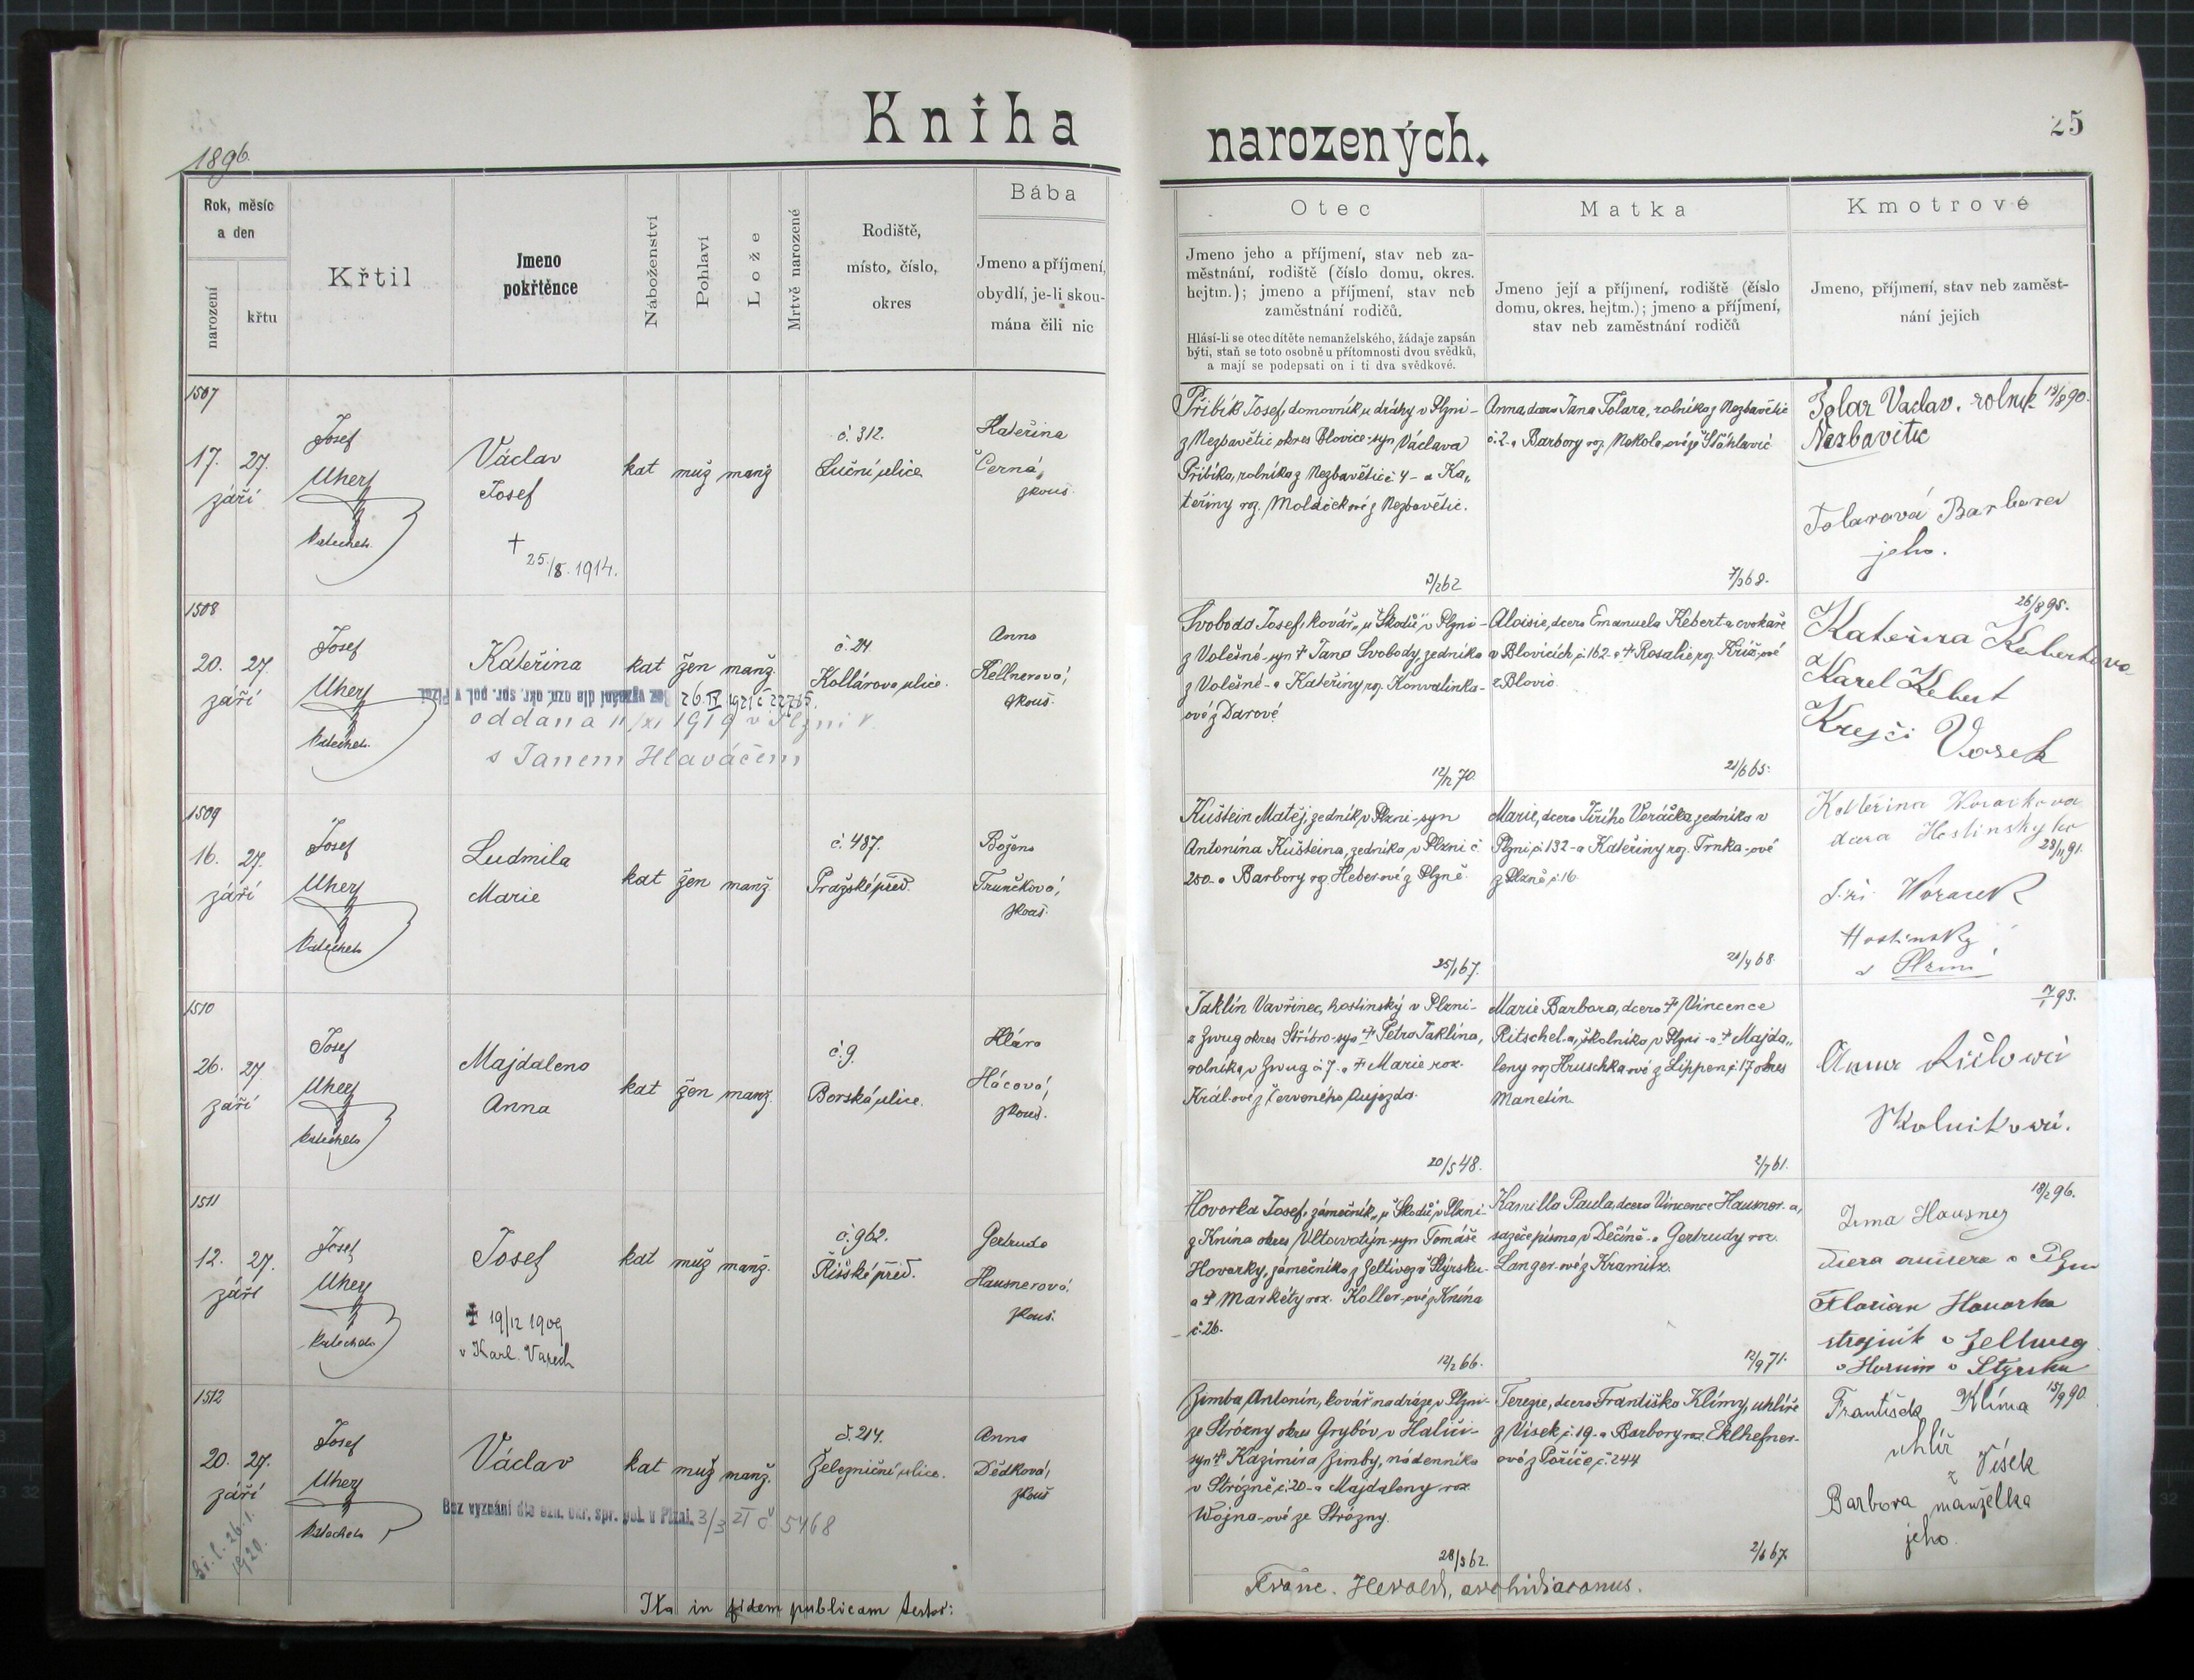 Kniha
narozených.
25
1896.
Rok, měsíc
a den
narození
křtu
Křtil
Jmeno
pokřtěnce
Náboženství
Pohlaví
Lože
Mrtvě narozené
Rodiště,
místo, číslo,
okres
Bába
Jmeno a příjmení,
obydlí, je-li skou-
mána čili nic
Otec
Jmeno jeho a příjmení, stav neb za-
městnání, rodiště (číslo domu, okres.
hejtm.); jmeno a příjmení, stav neb
zaměstnání rodičů.
Hlásí-li se otec dítěte nemanželského, žádaje zapsán
býti, staň se toto osobně u přítomnosti dvou svědků,
a mají se podepsati on i ti dva svědkové.
Matka
Jmeno její a příjmení, rodiště (číslo
domu, okres. hejtm.); jmeno a příjmení,
stav neb zaměstnání rodičů
Kmotrové
Jmeno, příjmení, stav neb zaměst-
nání jejich
1507
17. 27.
září
Josef
Uherz
katecheta
Václav
Josef
+
25./8. 1914.
kat muž manž
č. 312.
Luční ulice
Kateřina
Černá,
zkouš.
Přibík Josef, domovník u dráhy v Plzni -
z Nezbavětic okres Blovice - syn Václava
Přibíka, rolníka z Nezbavětic č 4 - a Ka„
teřiny roz. Moldíček-ové z Nezbavětic.
Anna dcera Jana Tolara, rolníka z Nezbavětic
č. 2. a Barbory roz. Nekola-ové z Šťáhlavic
7/3 68.
Tolar Vaclav. rolnik 18/8 90.
Nezbavitic
Tolarová Barbora
jeho.
1508
20. 27.
září
Josef
Uherz
katecheta
Kateřina
kat žen manž.
Bez vyznání dle ozn. okr. spr. pol. v Plzni
oddana 11/XI 1919 v Plzni
s Janem Hlaváčem
č. 24.
Kollárova ulice.
Anna
Kellnerová,
zkouš.
Svoboda Josef, kovář „u Škodů“ v Plzni -
z Volešné - syn † Jana Svobody, zedníka
z Volešné - a Kateřiny roz. Konvalinka-
ové z Darové
12/12 70.
Aloisie, dcera Emanuela Kebert-a cvokaře
v Blovicích, č. 162. a † Rosalie roz. Kříž-ové
z Blovic.
21/6 65.
26/8 95.
Kateřina Kebertova
Karel Kebert
Krejčí Vosek
1509
16. 27.
září
Josef
Uherz
katecheta
Ludmila
Marie
kat žen manž
č. 487.
Pražské před.
Božena
Trunčková,
zkouš.
Kuštein Matěj, zedník, v Plzni - syn
Antonína Kušteina, zedníka v Plzni č.
250. a Barbory roz. Heber-ové z Plzně.
25/1 67.
Marie, dcera Jiřího Voráčka zedníka v
Plzni č. 132 - a Kateřiny roz. Trnka-ové
z Plzně č. 16.
21/4 68.
Katteřina Woračkova
dcera Hostinskyho
28/11 91.
Jiři Woracek
Hostinský
v Plzni
1510
26. 27
září
Josef
Uherz
katecheta
Majdalena
Anna
kat žen manž.
č. 9.
Borská ulice.
Klára
Hácová,
zkouš.
Jaklín Vavřinec, hostinský v Plzni -
z Zwug okres Stříbro - syn † Petra Jaklína,
rolníka v Zwug č. 7. a † Marie roz.
Král-ové z Červeného Aujezda.
20/5 48.
Marie Barbara, dcera † Vincence
Ritschel-a, školníka v Plzni - a † Majda„
leny roz. Hruschka-ové z Lippen č. 17 okres
Manetín.
2/7 61.
Anna
Školnikowá.
1511
12. 27.
září
Josef
Uherz
katecheta
Josef
‡ 19/12 1909
v Karl. Varech
kat muž manž.
č. 962.
Říšské před.
Gertruda
Hausnerová,
zkouš.
Hovorka Josef, zámečník „u Škodů“ v Plzni -
z Knína okres Vltavotýn - syn Tomáše
Hovorky, zámečníka z Zeltivegu v Štýrsku -
a † Markéty roz. Koller-ové z Knína
č. 26.
12/2 66.
Kamilla Paula, dcera Vincence Hausner-a,
sazeče písma v Děčíně - a Gertrudy roz.
Langer-ové z Kramitz.
12/9 71.
18/2 96.
Irma Hausner
Florian Hovorka
strojník v Zeltweg
v Horním v Styrsku
1512
20. 27.
září
Josef
Uherz
katecheta
1920.
Václav
kat muž manž.
Bez vyznání dle ozn. okr. spr. pol. v Plzni. 3/3 21 č 5468
č. 214.
Železniční ulice.
Anna
Dědková,
zkouš
Zimba Antonín, kovář na dráze v Plzni -
ze Strózny okres Grybóv v Haliči -
syn † Kazimíra Zimby, nádenníka
v Strózně č. 20 - a Majdaleny roz
Wojna-ové ze Strózny.
28/3 62.
Terezie, dcera Františka Klímy, uhlíře
z Vísek č. 19 - a Barbory roz. Eklhefner-
ové z Poříče, č. 244
2/6 67.
František Klíma 15/9 90
uhlíř
z Vísek
Barbora manželka
jeho.
Ita in fidem publicam testor:
Franc. Herold, archidiaconus.